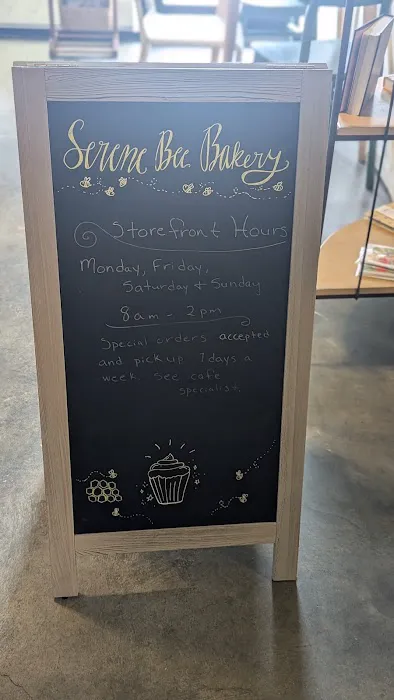 Serene Bee Bakery
Storefront Hours
Monday, Friday,
Saturday + Sunday
8am - 2pm
Special orders accepted
and pick up 7 days a
week. See cafe
specialist.